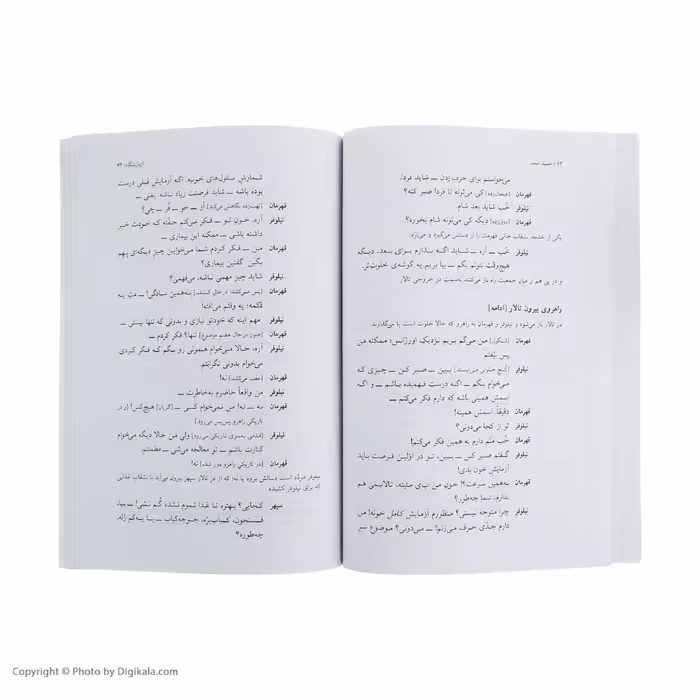 ۶۲ / حمید امجد
می‌خواستم برای حرف زدن ــ شاید فردا.
قهرمان [هیجان‌زده] کی می‌تونه تا فردا صبر کنه؟
نیلوفر خُب شاید بعدِ شام.
قهرمان [دوروبر] دیگه کی می‌تونه شام بخوره؟
یکی از خدمه، بشقاب خالی قهرمان را از دستش می‌گیرد و می‌برد.
نیلوفر خُب ــ آره ــ شاید اگه بذارم برای بعد، دیگه
هیچ‌وقت نتونم بگم ــ بیا بریم یه گوشه‌ی خلوت‌تر.
و در پی هم از میان جمعیت راه باز می‌کنند به‌سمت در خروجی تالار
راهروی بیرون تالار [ادامه]
در تالار باز می‌شود و نیلوفر و قهرمان به راهرو که حالا خلوت است پا می‌گذارند
قهرمان من می‌گم بریم نزدیک اورژانس؛ ممکنه من
پس بیُفتم
نیلوفر ببین ــ صبر کن ــ چیزی که
می‌خوام بگم ــ اگه درست فهمیده باشم ــ و اگه
اسمش همینی باشه که دارم فکر می‌کنم ــ
قهرمان دقیقاً. اسمش همینه!
نیلوفر تو از کجا می‌دونی؟
قهرمان خُب منَم دارم به همین فکر می‌کنم!
نیلوفر گفتم صبر کن ــ ببین، تو در اوّلین فرصت باید
آزمایش خون بدی!
قهرمان به‌همین سرعت؟! خونِ من اِ‌ی مثبته، تالاسمی هم
ندارم. شما چه‌طور؟
نیلوفر چرا متوجه نیستی؟ منظورم آزمایش کامل خونه! من
دارم جدّی حرف می‌زنم! ــ می‌دونی؟ موضوع سرِ
آزمایشگاه / ۶۳
شمارشِ سلول‌های خونیه. اگه آزمایش قبلی درست
بوده باشه ــ شاید فرصتت زیاد نباشه. یعنی ــ
قهرمان [بهت‌زده نگاهش می‌کند] اَز ــ خو ــ فُر ــ چی؟
نیلوفر آره. خونِ تو ــ فکر می‌کنم حقّته که خودت خبر
داشته باشی ــ ممکنه این بیماری ــ
قهرمان من ــ فکر کردم شما می‌خواین چیزِ دیگه‌ای بِهِم
بگین گفتین بیماری؟
نیلوفر شاید چیز مهمی نباشه، می‌فهمی؟
قهرمان [پس می‌کشد؛ درحال کشف] به‌همین سادگی! ــ مثِ یه
دُکمه؛ یه وقتم می‌اُفته!
نیلوفر مهم اینه که خودتو نبازی و بدونی که تنها نیستی ــ
قهرمان [هنوز درحال هضم موضوع] تنها؟ فکر کردم ــ
نیلوفر آره، حالا می‌خوام همونی رو بگم که فکر کردی
می‌خوام بدونی نگرانتم.
قهرمان [عقب می‌کشد] نَه!
نیلوفر من واقعاً حاضرم به‌خاطرت ــ
قهرمان نه ــ نَه! من نمی‌خوام کسی ــ [گریان] هیچ‌کس! [و در
تاریکی راهرو پس‌پس می‌رود]
نیلوفر [قدمی به‌سوی تاریکی می‌رود] ولی من حالا دیگه می‌خوام
کنارت باشم ــ تو معالجه می‌شی ــ مطمئنم.
قهرمان [در تاریکی راهرو دور شده] نَه!
نیلوفر مردّد است دنبالش برود یا نه؛ که از در تالار سپهر بیرون می‌آید با بشقاب غذایی
که برای نیلوفر کشیده
سپهر کجایی؟ بهتره تا غذا تموم نشده گُم نشی! ــ بیا،
فسنجون، کباب‌برّه، جوجه‌کباب ــ با یه‌کم ژله،
چه‌طوره؟
Copyright © Photo by Digikala.com